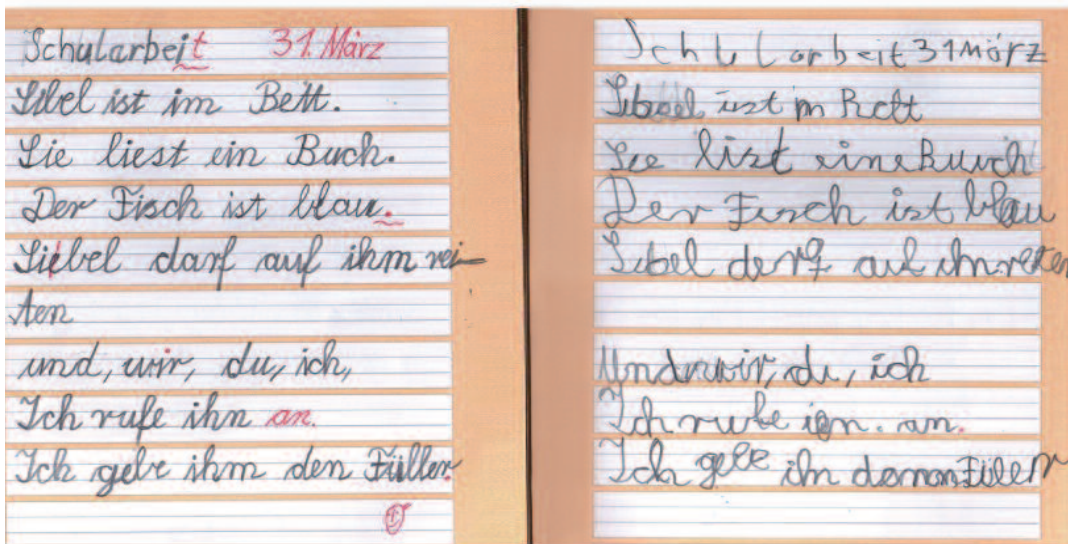 Schularbeit 31. März
Sibel ist im Bett.
Sie liest ein Buch.
Der Fisch ist blau.
Siebel darf auf ihm rei-
ten
und, wir, du, ich,
Ich rufe ihn an.
Ich gebe ihm den Füller.
Schularbeit 31 März
Sibel ist im Bett
See list eine Buuch
Der Fisch ist blau
Sibel derf auf
Und, wir, du, ich
Ich rube ign. an.
Ich gebe ihn Füller